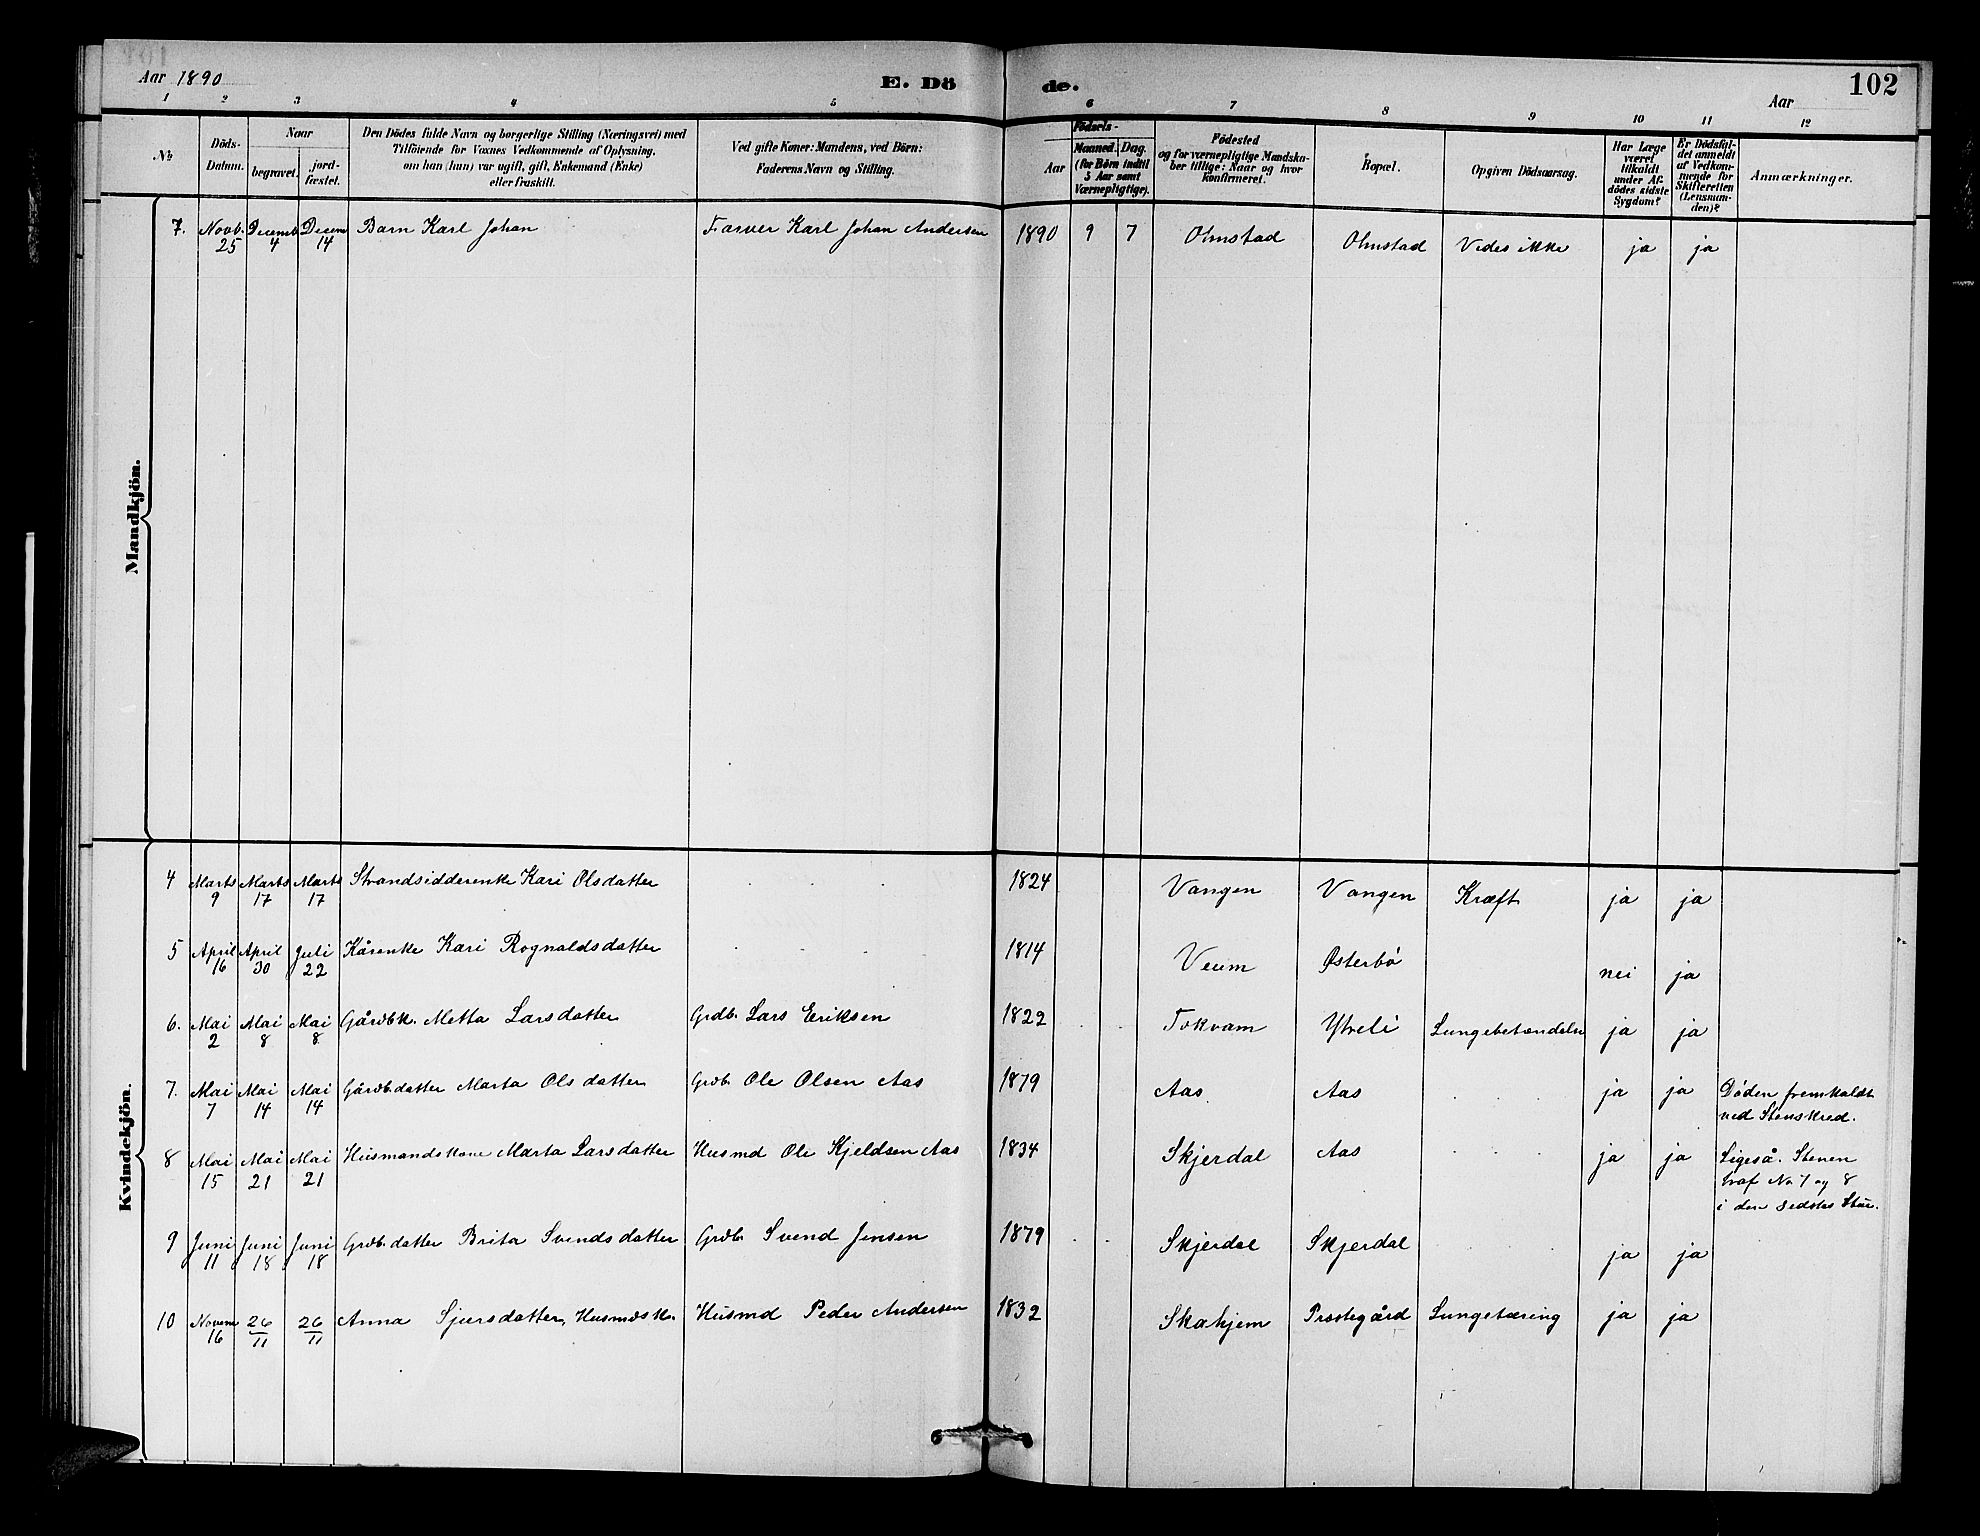 Aar 1890
E. Dö
de.
Aar
102
1 2 3 4 5 6 7 8 9 10 11 12
No
Döds-
Datum.
Naar
begravet.
jord-
fæstet.
Den Dödes fulde Navn og borgerlige Stilling (Næringsvei) med
Tilföiende for Voxnes Vedkommende af Oplysning,
om han (hun) var ugift, gift, Enkemand (Enke)
eller fraskilt.
Ved gifte Koner: Mandens, ved Börn:
Faderens Navn og Stilling.
Födsels-
Aar
Maaned. Dag.
(for Börn indtil
5 Aar samt
Værnepligtige).
Födested
og for værnepligtige Mandska-
ber tillige: Naar og hvor
konfirmeret.
Bopæl.
Opgiven Dödsaarsag.
Har Læge
været
tilkaldt
under Af-
dödes sidste
Sygdom?
Er Dödsfal-
det anmeldt
af Vedkom-
mende for
Skifteretten
(Lensman-
den)?
Anmærkninger.
Mandkjön.
7. Novb. 25 Decemb 4 Decem 14 Barn Karl Johan Farver Karl Johan Andersen 1890 9 7 Ohnstad Ohnstad Vides ikke ja ja
Kvindekjön.
4 Marts 9 Marts 17 Marts 17 Strandsidderenke Kari Olsdatter 1824 Vangen Vangen Kræft ja ja
5 April 16 April 30 Juli 22 Kårenke Kari Rognaldsdatter 1814 Veum Østerbø nei ja
6. Mai 2 Mai 8 Mai 8 Gårdbk. Metta Larsdatter Grdb. Lars Eriksen 1822 Tokvam Ytreli Lungebetændelse ja ja
7. Mai 7 Mai 14 Mai 14 Gårdbdatter Marta Olsdatter Grdb. Ole Olsen Aas 1879 Aas Aas ja ja Døden fremkaldt
ved Stenskred.
8 Mai 15 Mai 21 Mai 21 Husmandskone Marta Larsdatter Husmd Ole Kjeldsen Aas 1834 Skjerdal Aas ja ja Ligeså. Stenen
traf No 7 og 8
i den sedstes Stue.
9 Juni 11 Juni 18 Juni 18 Grdb.datter Brita Svendsdatter Grdb. Svend Jensen 1879 Skjerdal Skjerdal ja ja
10 Novem 16 26/11 26/11 Anna Sjursdatter, Husmdsk. Husmd Peder Andersen 1832 Skahjem Præstegård Lungetæring ja ja